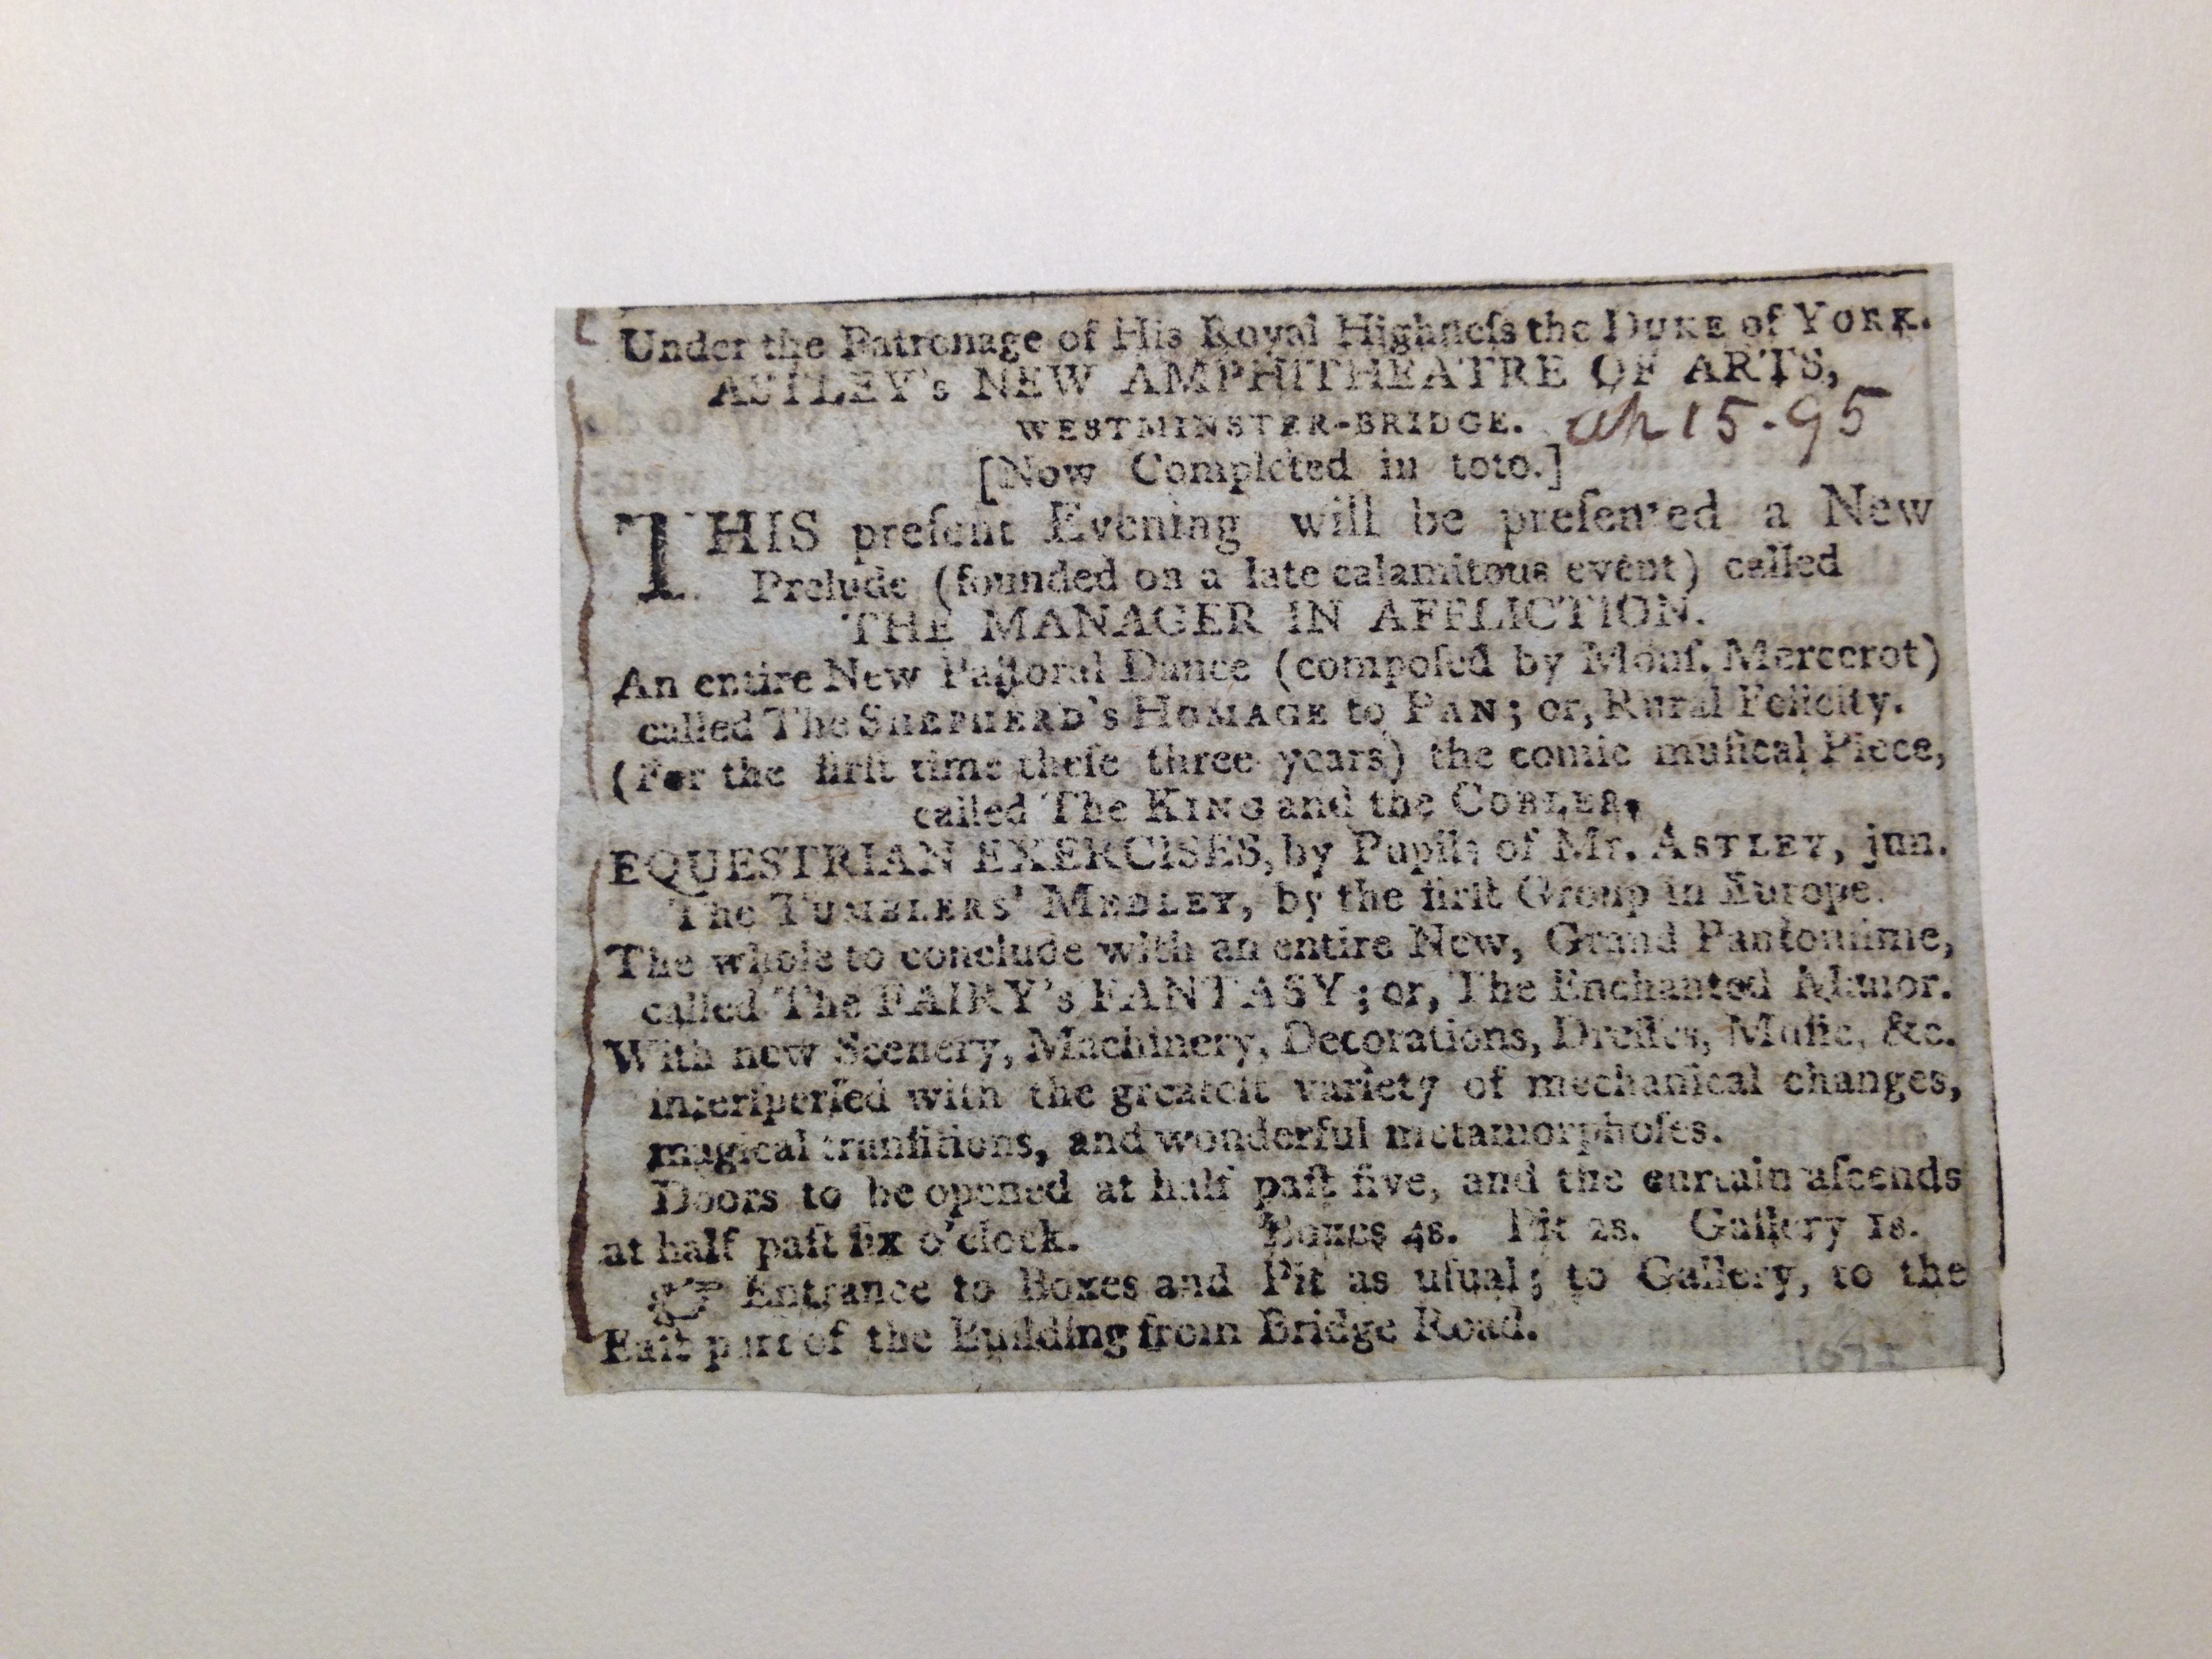 Under the Patronage of His Royal Highneſs the DUKE of YORK.
ASTLEY's NEW AMPHITHEATRE OF ARTS,
WESTMINSTER-BRIDGE. Ap 15-95
[Now Completed in toto.]
THIS preſent Evening will be preſented a New
Prelude (founded on a late calamitous event) called
THE MANAGER IN AFFLICTION.
An entire New Paſtoral Dance (compoſed by Monſ. Mercerot)
called The SHEPHERD's HOMAGE to PAN; or, Rural Felicity.
(For the firſt time theſe three years) the comic muſical Piece,
called The KING and the COBLER,
EQUESTRIAN EXERCISES, by Pupils of Mr. ASTLEY, jun.
The TUMBLERS' MEDLEY, by the firſt Group in Europe.
The whole to conclude with an entire New, Grand Pantomime,
called The FAIRY's FANTASY; or, The Enchanted Manor.
With new Scenery, Machinery, Decorations, Dreſſes, Muſic, &c.
interſperſed with the greateſt variety of mechanical changes,
magical tranſitions, and wonderful metamorphoſes.
Doors to be opened at half paſt five, and the curtain aſcends
at half paſt ſix o'clock. Boxes 4s. Pit 2s. Gallery 1s.
☞ Entrance to Boxes and Pit as uſual; to Gallery, to the
Eaſt part of the Building from Bridge Road.